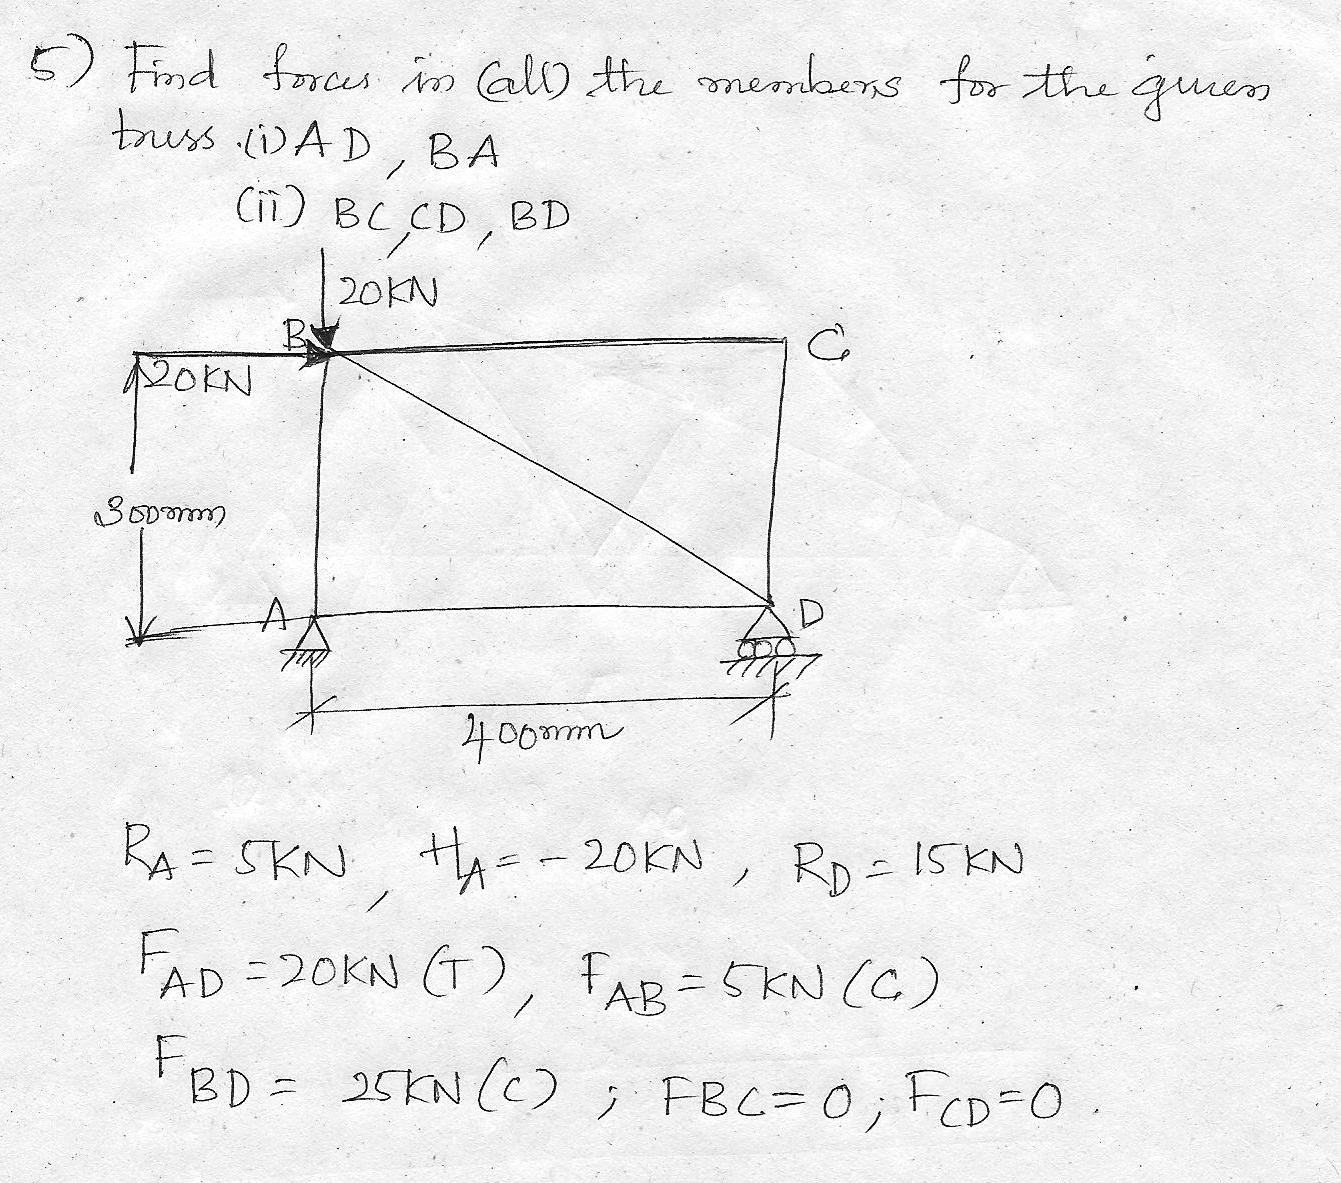 5) Find forces in (all) the members for the given
truss (i) AD, BA
(ii) BC, CD, BD
20KN
B
C
20KN
300mm
A
D
400mm
RA = 5KN, HA = -20KN, RD = 15KN
FAD = 20KN (T), FAB = 5KN (C)
FBD = 25KN (C) ; FBC = 0 ; FCD = 0.